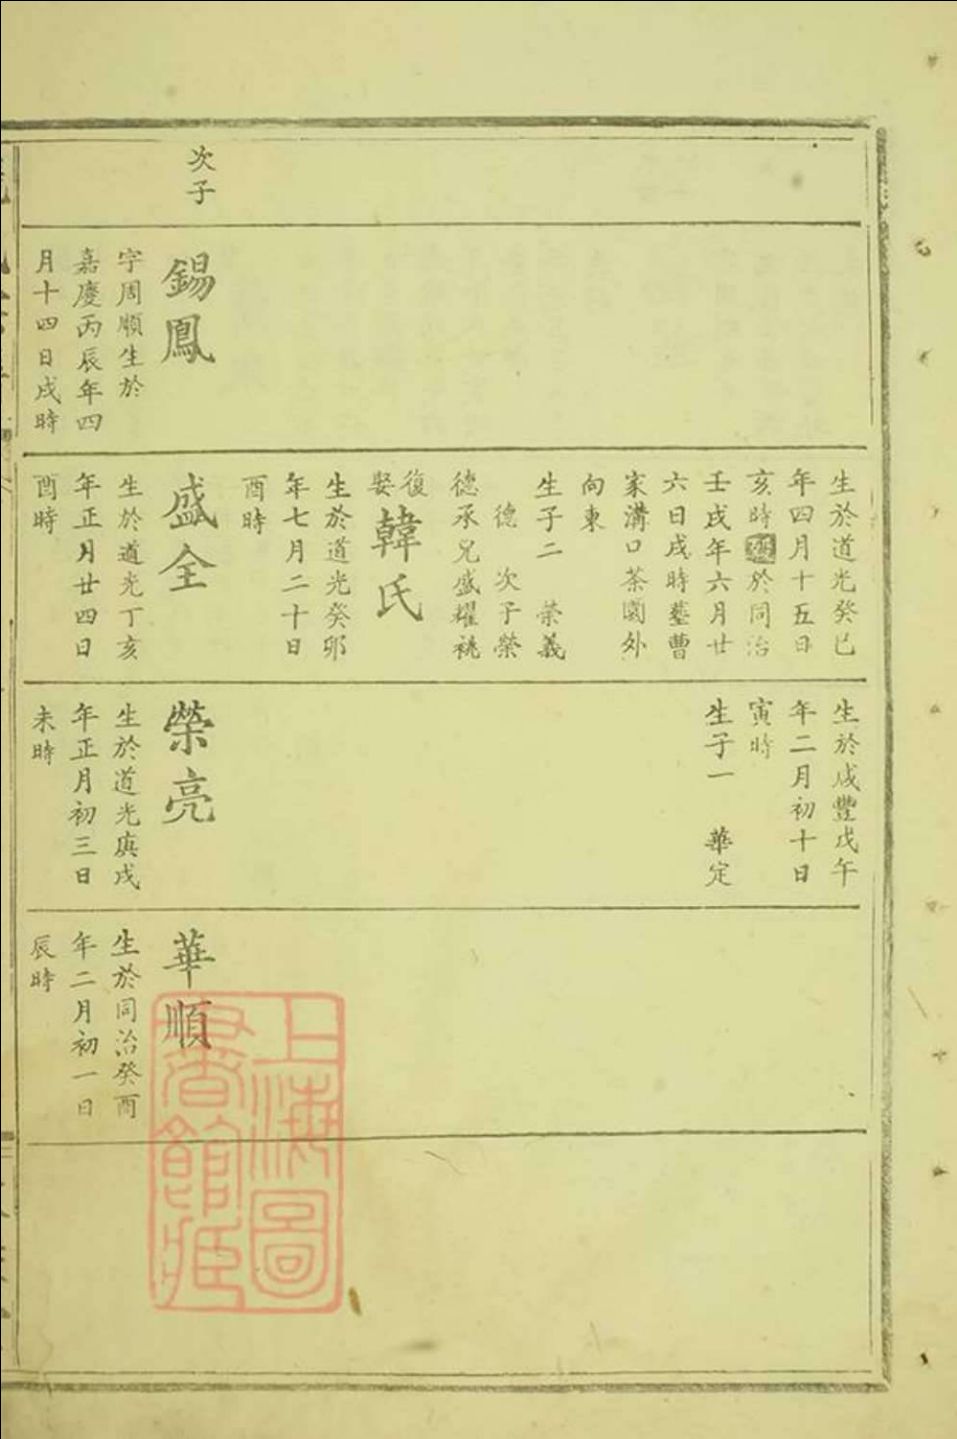 次子
錫鳳
字周順生於
嘉慶丙辰年四
月十四日戌時
生於道光癸巳
年四月十五日
亥時歿於同治
壬戌年六月廿
六日戌時墓曹
家溝口茶園外
向東
生子二 榮義
德 次子榮
德承兄盛耀祧
復娶韓氏
生於道光癸卯
年七月二十日
酉時
盛全
生於道光丁亥
年正月廿四日
酉時
生於咸豐戊午
年二月初十日
寅時
生子一 華定
榮亮
生於道光庚戌
年正月初三日
未時
華順
生於同治癸酉
年二月初一日
辰時
上海圖
書館藏